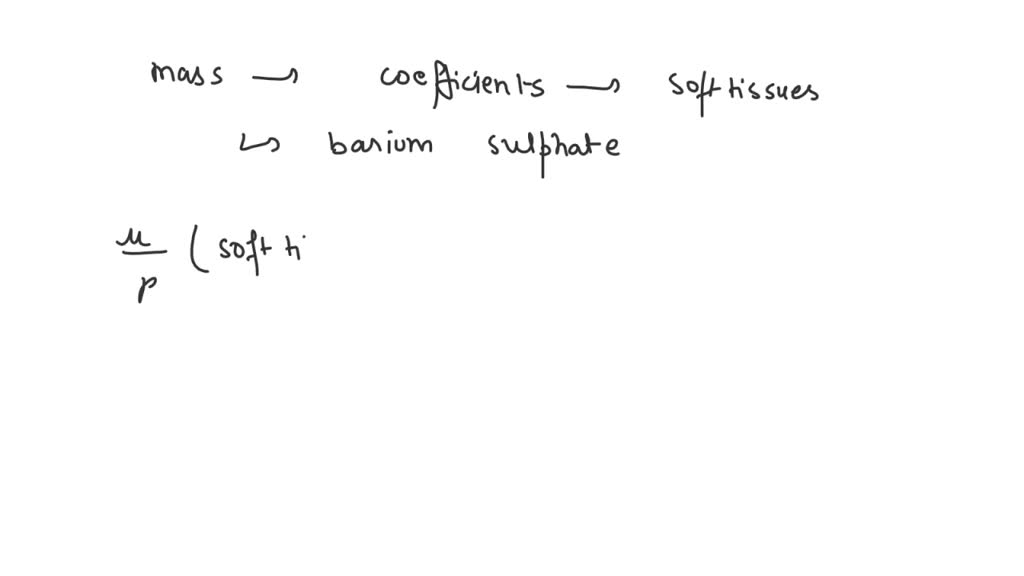 mass → coefficients → soft tissues
↳ barium sulphate
μ/ρ ( soft ti